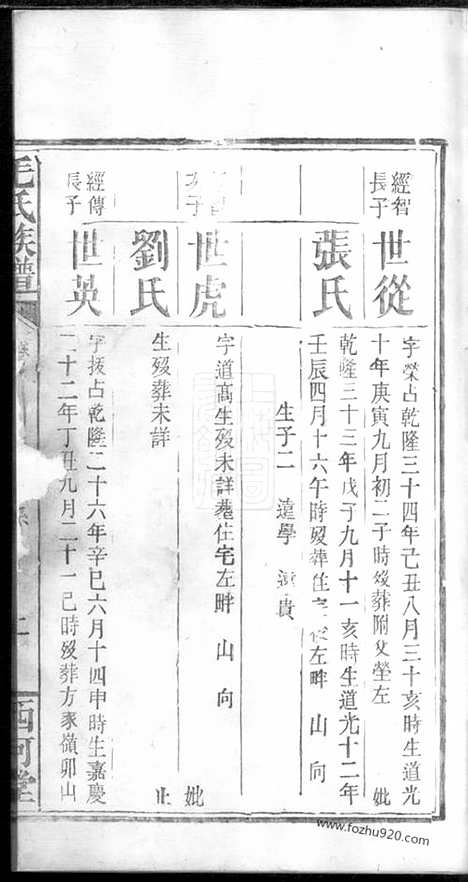 經智長子
世從
字榮占乾隆三十四年己丑八月三十亥時生道光
十年庚寅九月初二子時歿葬附父塋左 妣
張氏
乾隆三十三年戊子九月十一亥時生道光十二年
壬辰四月十六午時歿葬住宅後左畔 山 向
生子二 遠學 貴
次子
世虎
字道高生歿未詳葬住宅左畔 山 向 妣
劉氏
生歿葬未詳 止
經傳長子
世英
字援占乾隆二十六年辛巳六月十四申時生嘉慶
二十二年丁丑九月二十一巳時歿葬方家嶺卯山
毛氏族譜
二
西河堂
www.fozhu920.com